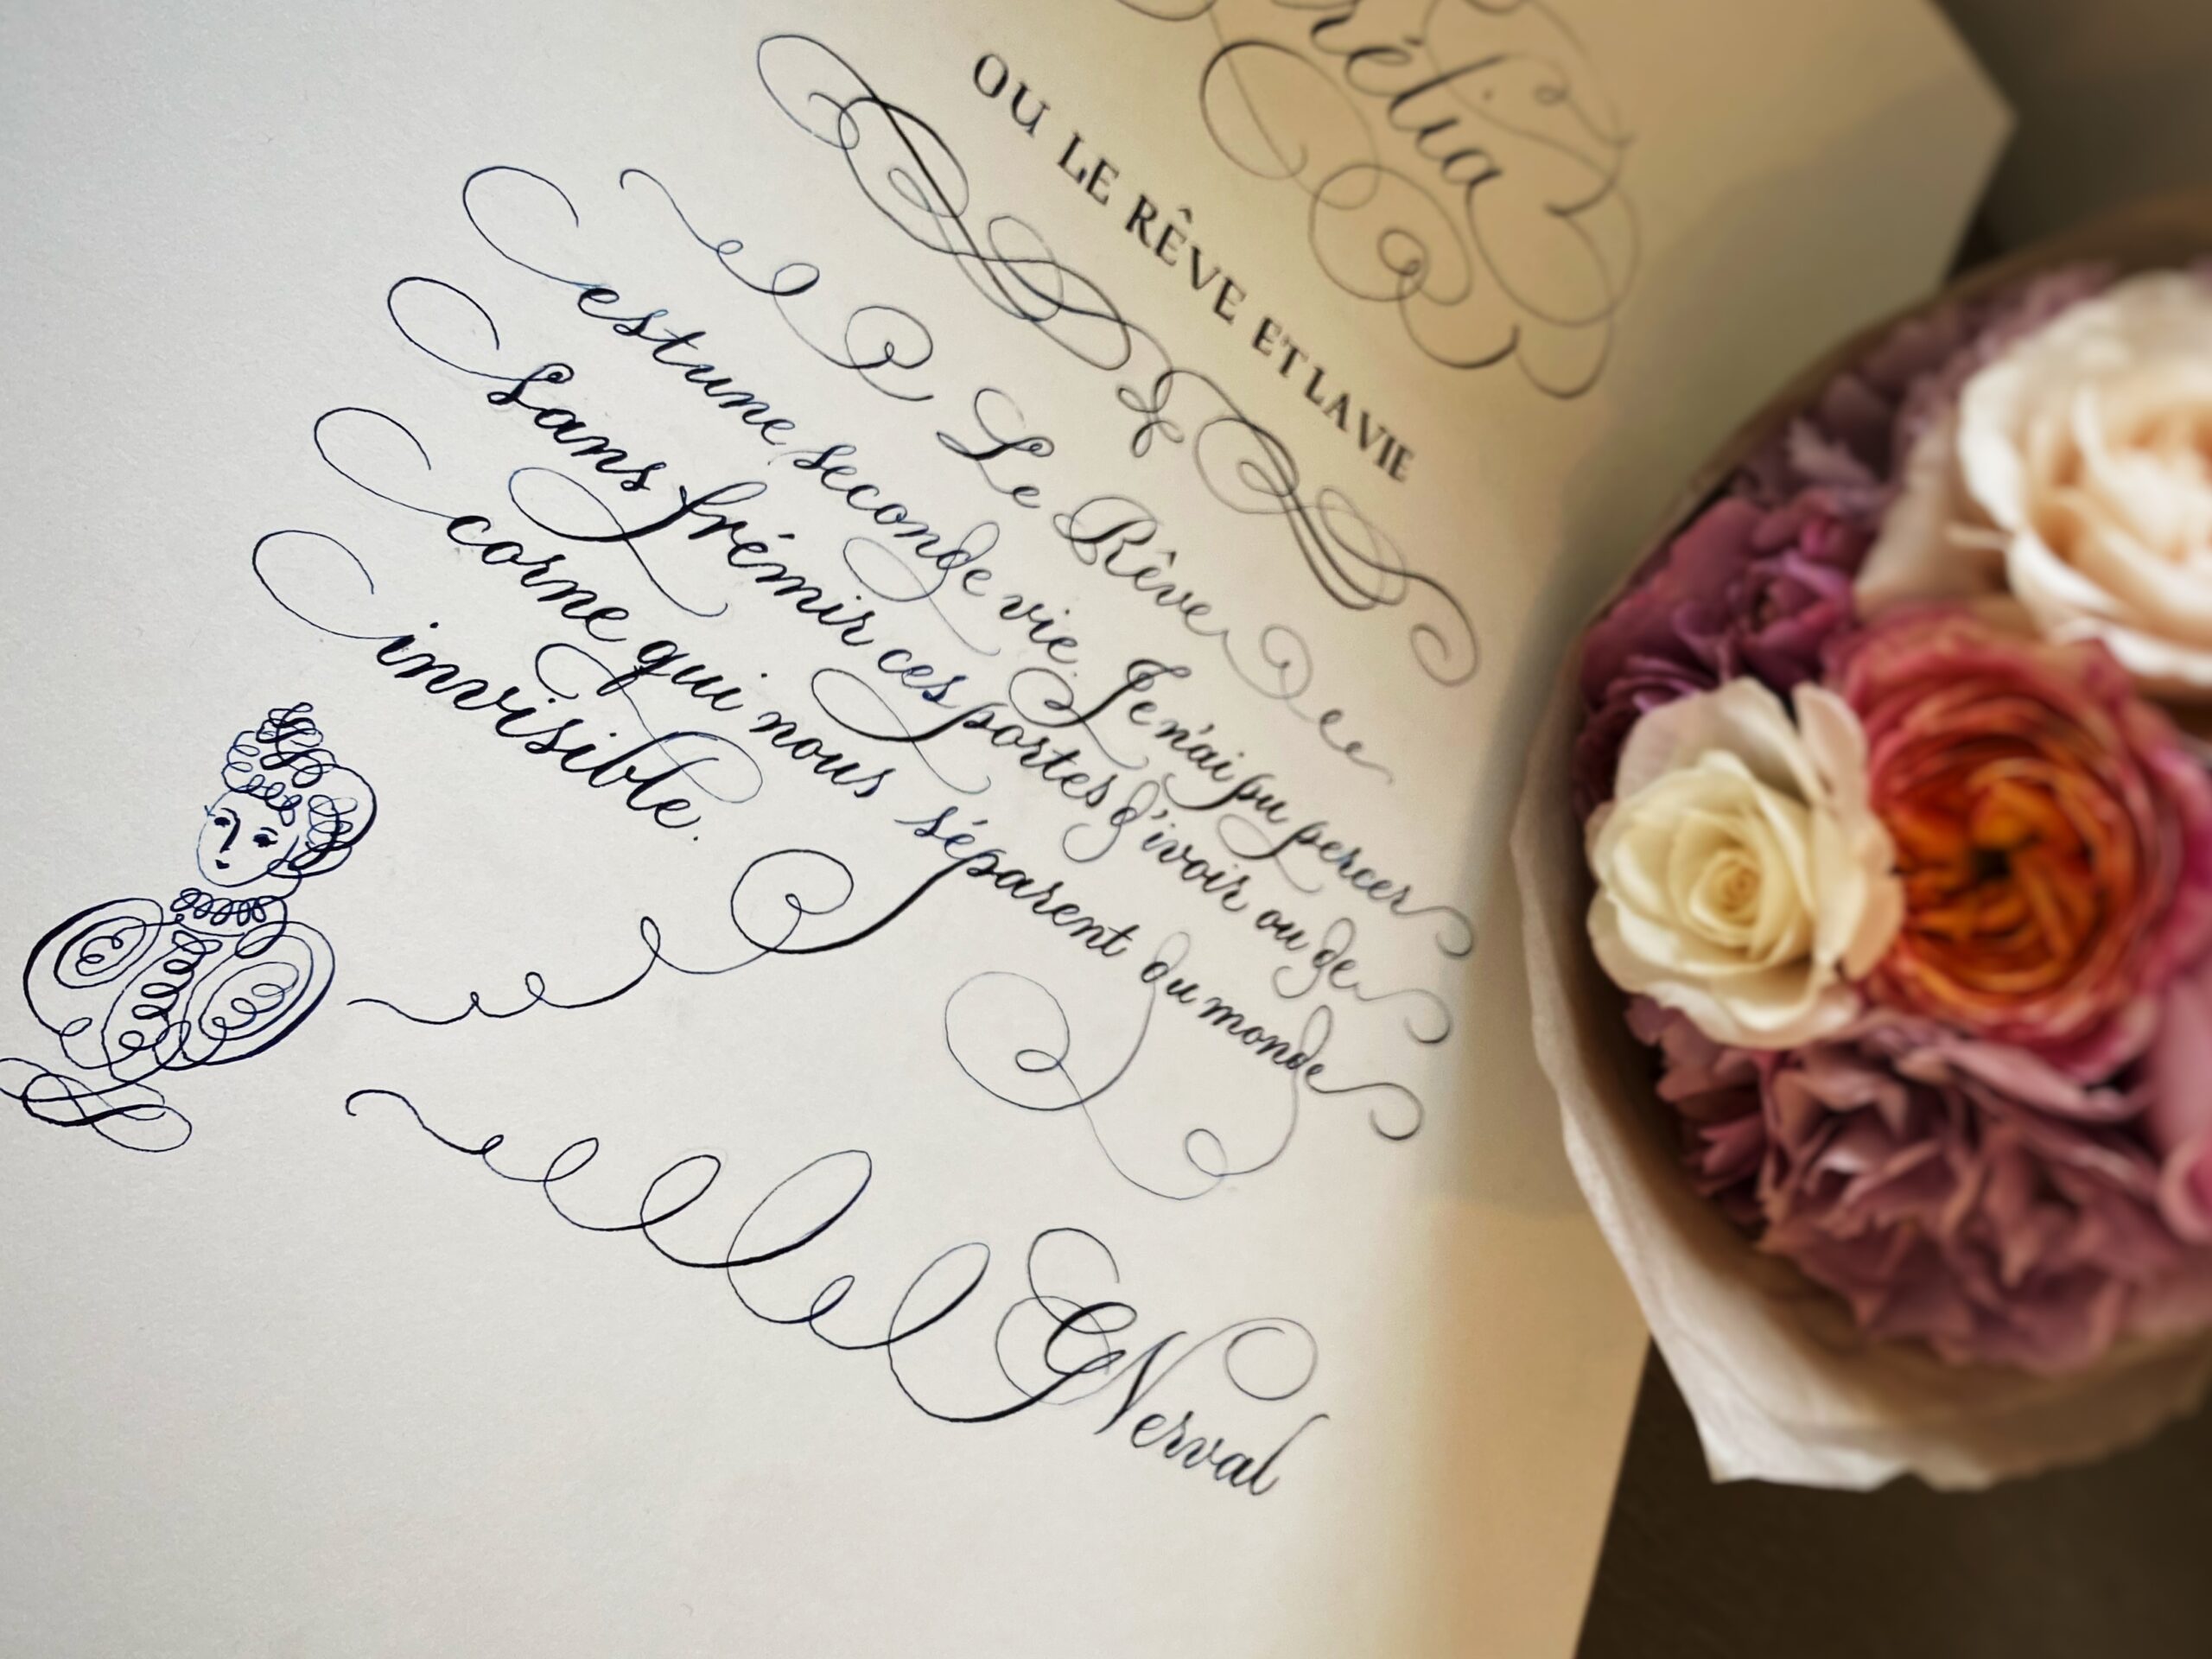 rélia
OU LE RÊVE ET LA VIE
Le Rêve
est une seconde vie. Je n'ai pu percer
sans frémir ces portes d'ivoir ou de
corne qui nous séparent du monde
invisible.
GNerval